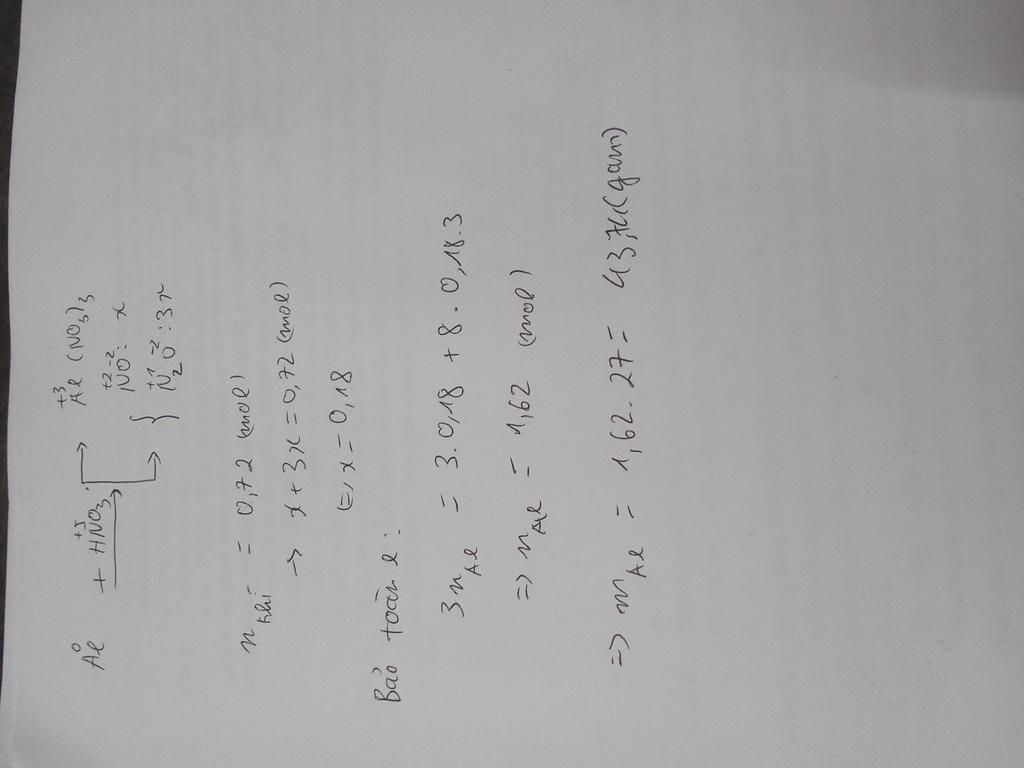 0 +5 +3
Al + HNO3 → Al(NO3)3
+2 -2
{ NO: x
+1 -2
N2O: 3x
n khí = 0,72 (mol)
→ x + 3x = 0,72 (mol)
(=) x = 0,18
Bảo toàn e:
3nAl = 3.0,18 + 8.0,18.3
=> nAl = 1,62 (mol)
=> mAl = 1,62.27 = 43,74(gam)